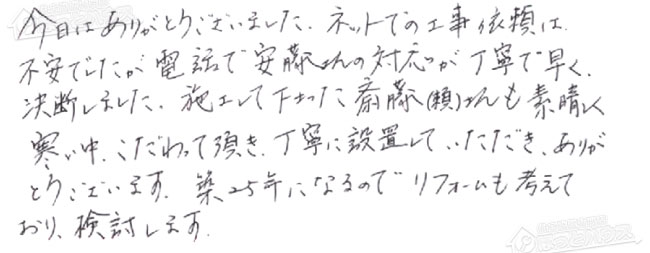 今日はありがとうございました。ネットでの工事依頼は、
不安でしたが電話で安藤さんの対応が丁寧で早く、
決断しました。施工して下さった斎藤(頼)さんも素晴しく
寒い中、こだわって頂き、丁寧に設置していただき、ありが
とうございます。築25年になるのでリフォームも考えて
おり、検討します。